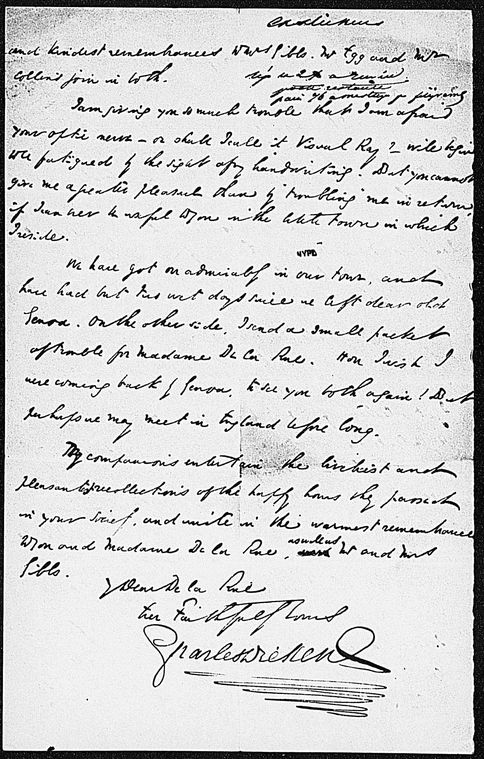 and kindest remembrances to Mrs Gibbs. Mr Egg and Mr
Collins join in both.
I am giving you so much trouble that I am afraid
your optic nerve – or shall I call it Visual Ray? – will begin
to be fatigued by the sight of my handwriting. But you cannot
give me a greater pleasure than by troubling me in return,
if I can ever be useful to you in the little town in which
I reside.
NYPD
We have got on admirably in our tour, and
have had but two wet days since we left dear old
Genoa. On the other side, I send a small packet
of trouble for Madame De la Rue. How I wish I
were coming back by Genoa, to see you both again! But
perhaps we may meet in England before long.
My companions entertain the liveliest and
pleasantest recollections of the happy hours they passed
in your society, and unite in the warmest remembrances
to you and Madame De la Rue, as well as to Mr and Mrs
Gibbs.
My Dear De la Rue
Ever Faithfully Yours
Charles Dickens